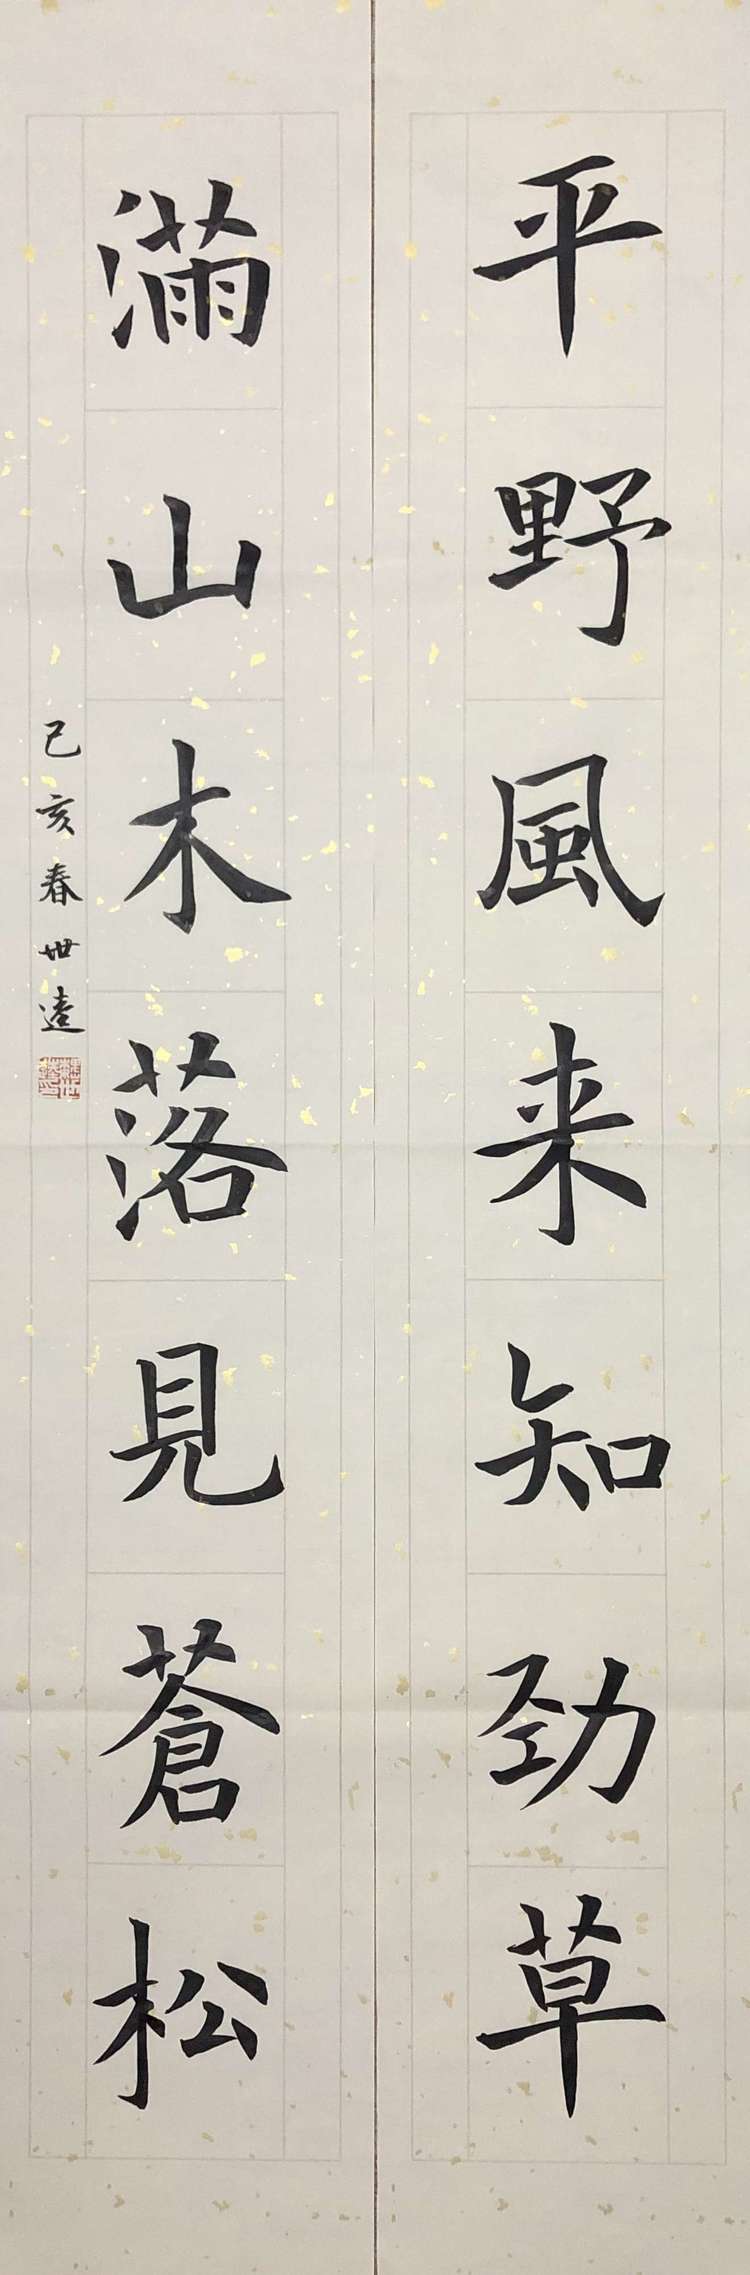 平野風来知劲草
滿山木落見蒼松
己亥春世逵